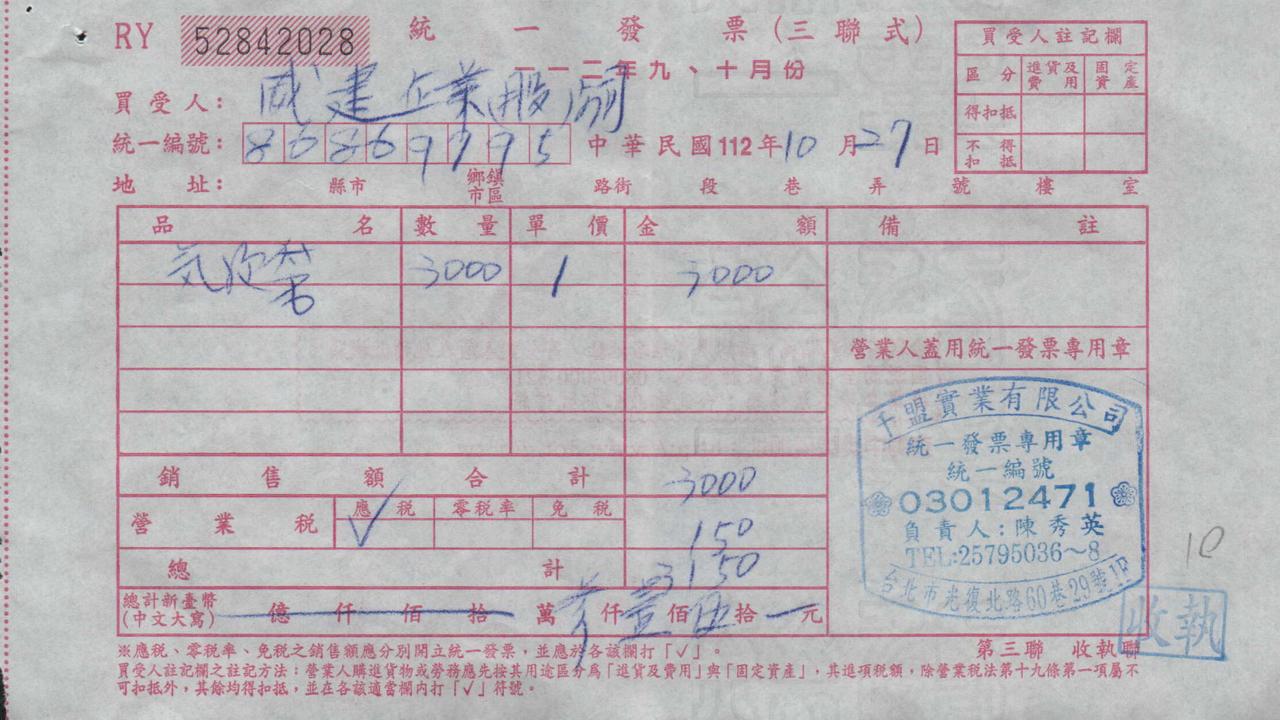 RY 52842028 統一發票(三聯式)
一一二年九、十月份
買受人: 威建企業股份
統一編號: 86869795 中華民國112年10月27日
地址: 縣市 鄉鎮市區 路街 段 巷 弄 號 樓 室
買受人註記欄
區分 進貨及費用 固定資產
得扣抵
不得扣抵
品名 數量 單價 金額 備註
3000 1 3000
營業人蓋用統一發票專用章
銷售額合計 3000
營業稅 應稅 √ 零稅率 免稅 150
總計 3150
總計新臺幣(中文大寫) 億 仟 佰 拾 萬 仟 壹 佰 伍 拾 元
千盟實業有限公司
統一發票專用章
統一編號
03012471
負責人:陳秀英
TEL:25795036~8
台北市光復北路60巷29號1F
10
收執
※應稅、零稅率、免稅之銷售額應分別開立統一發票,並應於各該欄打「√」。
第三聯 收執聯
買受人註記欄之註記方法:營業人購進貨物或勞務應先按其用途區分為「進貨及費用」與「固定資產」,其進項稅額,除營業稅法第十九條第一項屬不
可扣抵外,其餘均得扣抵,並在各該適當欄內打「√」符號。